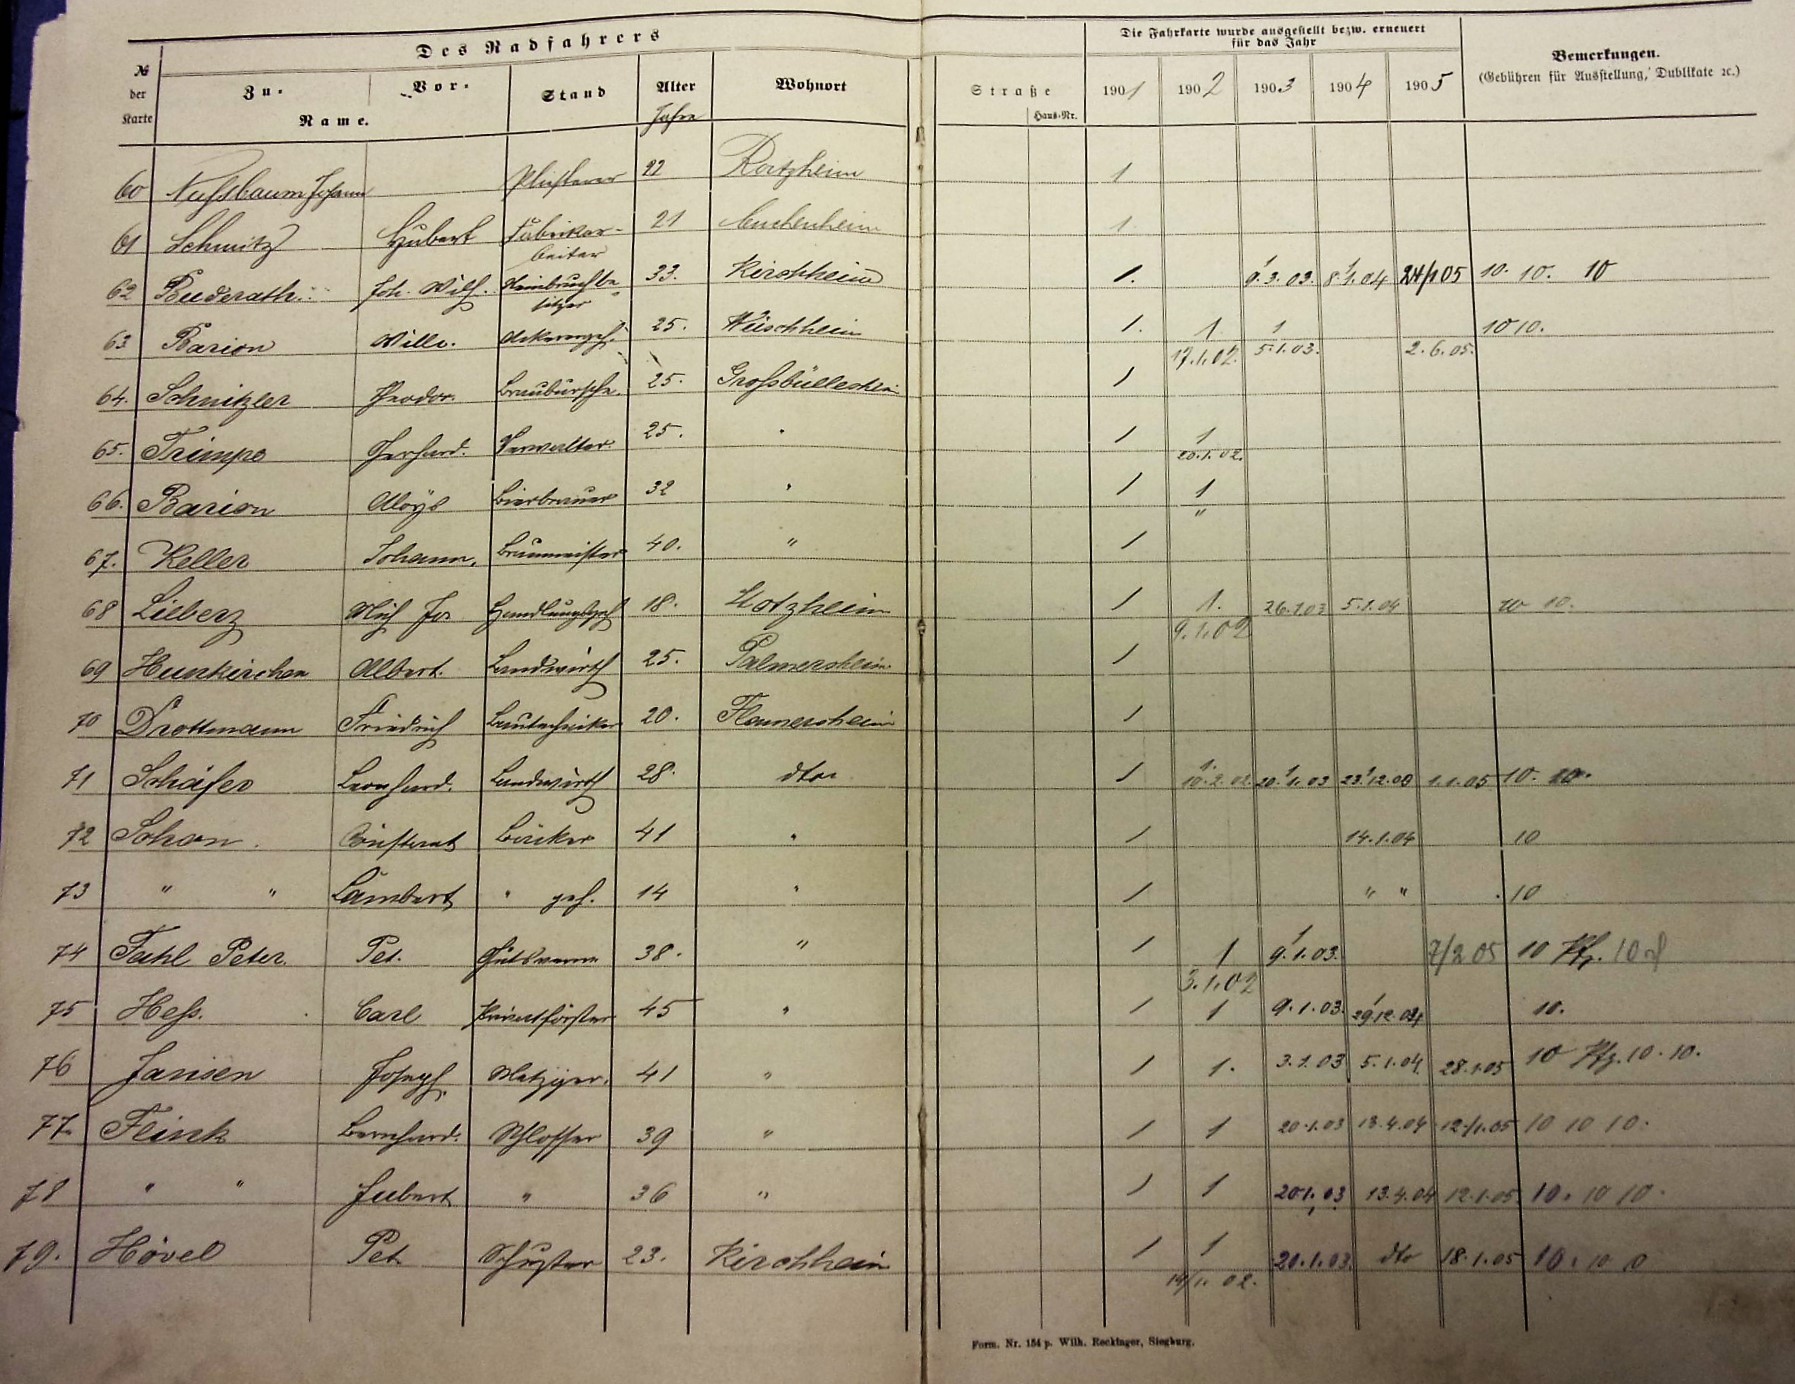 Des Radfahrers
Die Fahrkarte wurde ausgestellt bezw. erneuert
für das Jahr
Bemerkungen.
(Gebühren für Ausstellung, Dublikate ꝛc.)
№
der
Karte
Zu-
Vor-
Name.
Stand
Alter
Jahre
Wohnort
Straße
Haus-Nr.
1901 1902 1903 1904 1905
60 Nußbaum Johann Plisterer 22 Rotzheim 1
61 Schmitz Hubert Fabrikar- 21 Cuchenheim 1.
beiter
62 Buderath Joh. Wilh. Steinbruchbe- 33. Kirchheim 1. 1 9.3.03. 1 8.1.04 24/1 05 10. 10. 10
sitzer
63 Barion Wilh. Ackerergeh. 25. Weischheim 1. 1 1 10 10.
17.1.02. 5.1.03. 2.6.05.
64. Schnitzler Theodor. Braubursche. 25. Großbüllesheim 1
65. Trimpo Gerhard. Verwalter. 25. " 1 1
20.1.02.
66. Barion Aloys Bierbrauer 32 " 1 1
"
67. Keller Johann. Braumeister 40. " 1
68 Lieberz Mich Jos Handlungsgeh 18. Kotzheim 1 1. 26.1.03 5.1.04 10 10.
9.1.02
69 Hunkirchen Albert. Landwirth 25. Palmersheim. 1
70 Drottmann Friedrich Bautechniker 20. Flamersheim 1
71 Schäfer Bernhard. Landwirth 28. dto 1 1. 10.2.02. 1 20.1.03 1 23.12.03 1.1.05 10. 10.
72 Schon. Constant Bäcker 41 " 1 14.1.04 10
73 " " Lambert " geh. 14 " 1 " " 10
74 Fuhl Peter Pet. Gutsverw. 38. " 1 1 1 9.1.03. 7/2 05 10 Pfg. 10 ₰
3.1.02
75 Heß. Carl Privatförster 45 " 1 1 9.1.03. 1 29.12.04 10.
76 Jansen Joseph. Metzger. 41 " 1 1. 3.1.03 5.1.04. 28.1.05 10 Pfg. 10. 10.
77. Flink Bernhard. Schlosser 39 " 1 1 20.1.03 13.4.04 12/1.05 10 10 10.
78 " " Hubert " 36 " 1 1 20.1.03 13.4.04 12.1.05 10. 10 10.
79. Hövel Pet Schuster 23. Kirchheim 1 1 20.1.03. dto 18.1.05 10. 10 0
14/1. 02.
Form. Nr. 154 p. Wilh. Reckinger, Siegburg.